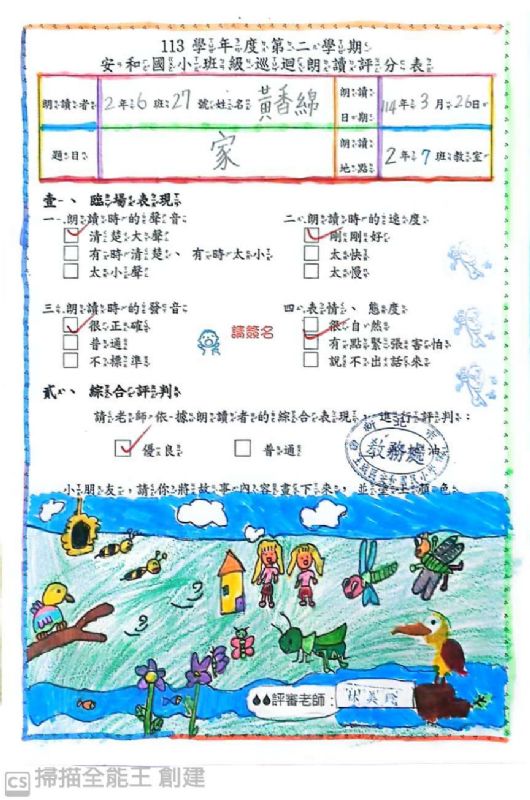 113 學年度第二學期
安和國小班級巡迴朗讀評分表
朗讀者 2年6班27號姓名 黃香綿 朗讀日期 114年3月26日
題目 家 朗讀地點 2年7班教室
壹、臨場表現
一、朗讀時的聲音
清楚大聲
有時清楚、有時太小
太小聲
二、朗讀時的速度
剛剛好
太快
太慢
三、朗讀時的發音
很正確
普通
不標準
請簽名
四、表情、態度
很自然
有點緊張害怕
說不出話來
貳、綜合評判
請老師依據朗讀者的綜合表現，進行評判：
優良
普通
油
教務處
小朋友，請你將故事內容畫下來，並塗上顏色
評審老師：
CS 掃描全能王 創建